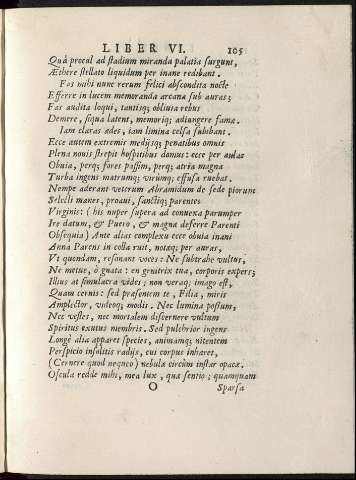 LIBER VI. 105
Quà procul ad stadium miranda palatia surgunt,
Æthere stellato liquidum per inane redibant.
Fas mihi nunc rerum felici abscondita nocte
Efferre in lucem memoranda arcana sub auras;
Fas audita loqui, tantisq; obliuia rebus
Demere, siqua latent, memoriq; adiungere famæ.
Iam claras ædes, iam limina celsa subibant.
Ecce autem extremis medijsq; penatibus omnis
Plena nouis strepit hospitibus domus: ecce per aulas
Obuia, perq; fores passim, perq; atria magna
Turba ingens matrumq; virûmq; effusa ruebat.
Nempe aderant veterum Abramidum de sede piorum
Selecti manes, proaui, sanctiq; parentes
Virginis: (his nuper supera ad conuexa parumper
Ire datum, & Puero, & magnæ deferre Parenti
Obsequia) Ante alias complexu ecce obuia inani
Anna Parens in colla ruit, notæq; per auras,
Vt quondam, resonant voces: Ne subtrahe vultus,
Ne metue, ô gnata: en genitrix tua, corporis expers;
Illius at simulacra vides; non veraq; imago est,
Quam cernis: sed præsentem te, Filia, miris
Amplector, videoq; modis. Nec lumina possum,
Nec vestes, nec mortalem discernere vultum
Spiritus exutus membris. Sed pulchrior ingens
Longè alia apparet species, animamq; nitentem
Perspicio insolitis radijs, cui corpus inhæret,
(Cernere quod nequeo) nebulæ circùm instar opacæ.
Oscula redde mihi, mea lux, quæ sentio; quamquam
O Sparsa